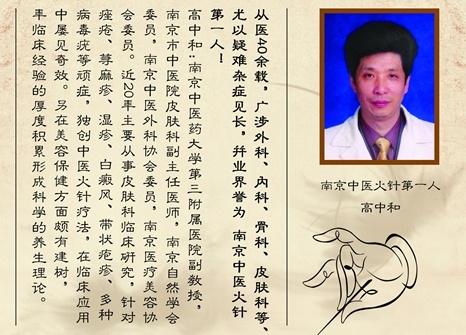 从医40余载，广涉外科、内科、骨科、皮肤科等、
尤以疑难杂症见长，并业界誉为 南京中医火针
第一人！
高中和：南京中医药大学第三附属医院副教授，
南京市中医院皮肤科副主任医师，南京自然学会
委员，南京中医外科协会委员，南京医疗美容协
会委员。近20年主要从事皮肤科临床研究，针对
痤疮、荨麻疹、湿疹、白癜风、带状疱疹、多种
病毒疣等顽症，独创中医火针疗法，在临床应用
中屡见奇效。另在美容保健方面颇有建树，
年临床经验的厚度积累形成科学的养生理论。
南京中医火针第一人
高中和